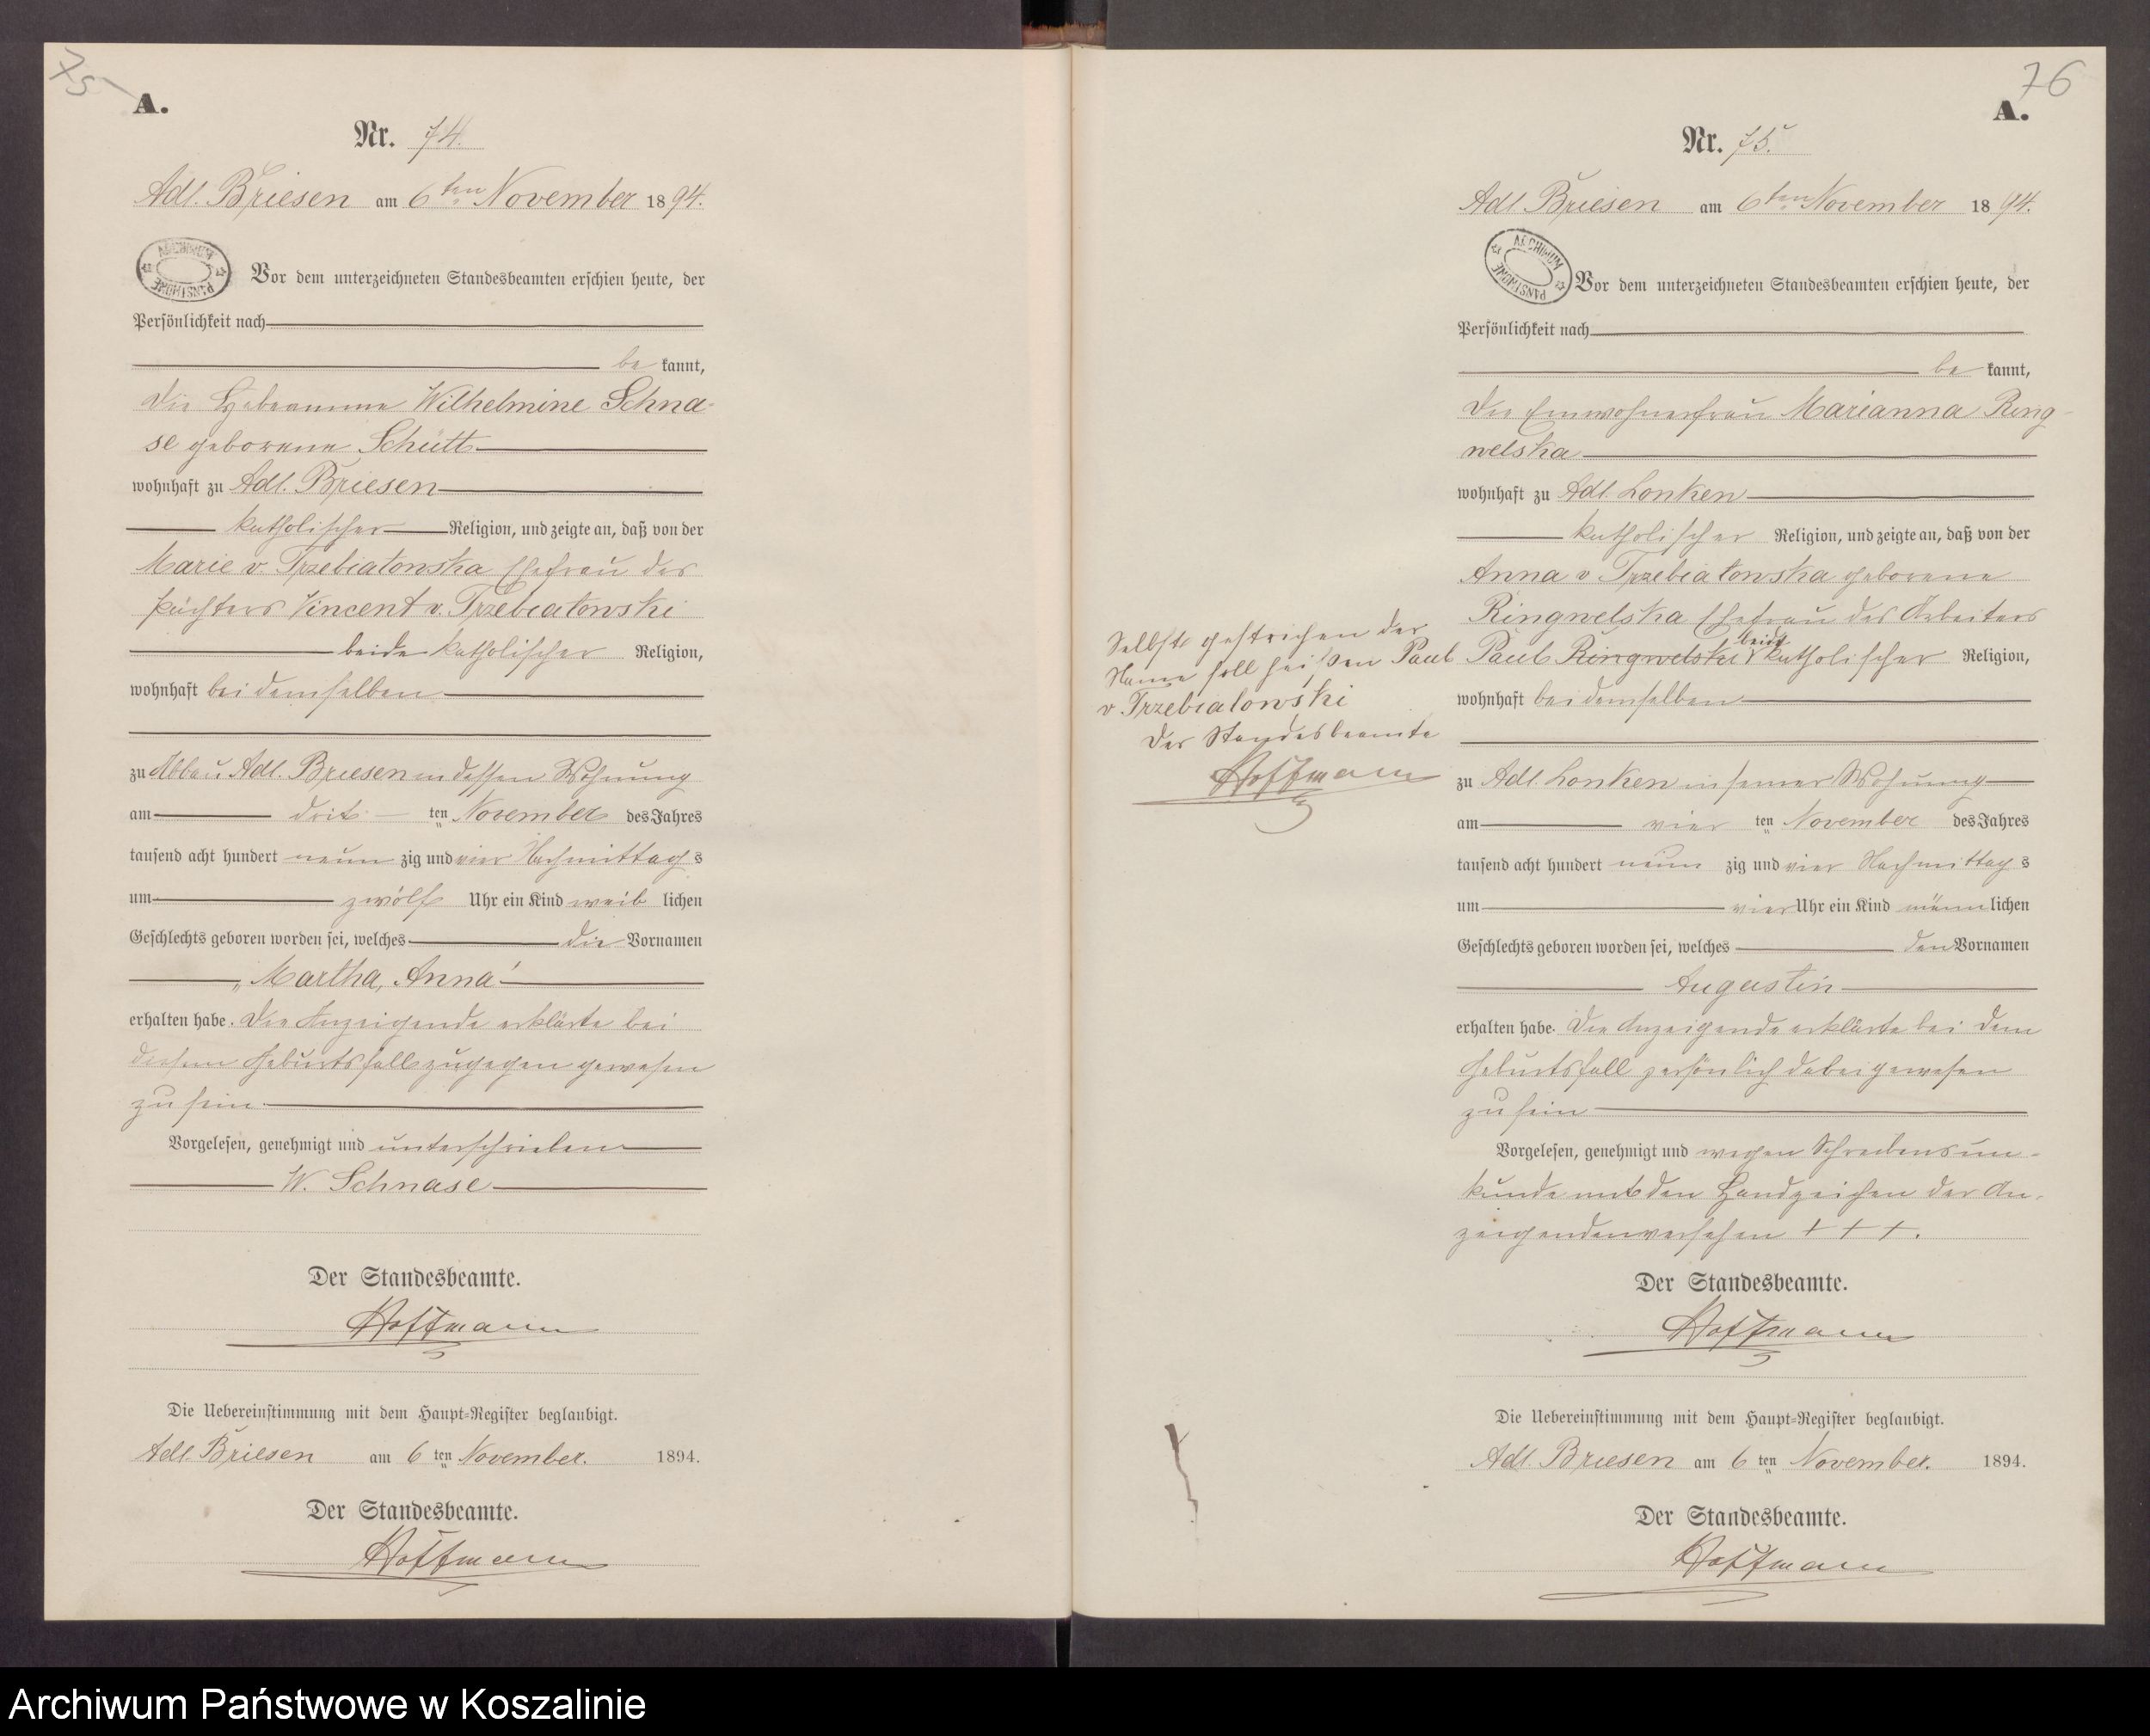 75
A.
Nr. 74.
Adl. Briesen am 6ten November 1894.
ARCHIWUM PAŃSTWOWE
Vor dem unterzeichneten Standesbeamten erschien heute, der
Persönlichkeit nach
be kannt,
die Hebeamme Wilhelmine Schna-
se geborene Schütt
wohnhaft zu Adl. Briesen
katholischer Religion, und zeigte an, daß von der
Marie v. Trzebiatowska Ehefrau des
Pächters Vincent v. Trzebiatowski
beide katholischer Religion,
wohnhaft bei demselben
zu Abbau Adl. Briesen in dessen Wohnung
am drit ten November des Jahres
tausend acht hundert neun zig und vier Nachmittag s
um zwölf Uhr ein Kind weib lichen
Geschlechts geboren worden sei, welches die Vornamen
„Martha, Anna“
erhalten habe. Die Anzeigende erklärte bei
diesem Geburtsfall zugegen gewesen
zu sein.
Vorgelesen, genehmigt und unterschrieben
W. Schnase
Der Standesbeamte.
Hoffmann
Die Uebereinstimmung mit dem Haupt-Register beglaubigt.
Adl. Briesen am 6 ten November. 1894.
Der Standesbeamte.
Hoffmann
76
A.
Nr. 75.
Adl. Briesen am 6ten November 1894.
ARCHIWUM PAŃSTWOWE
Vor dem unterzeichneten Standesbeamten erschien heute, der
Persönlichkeit nach
be kannt,
die Einwohnerfrau Marianna Ring-
welska
wohnhaft zu Adl. Lonken
katholischer Religion, und zeigte an, daß von der
Anna v Trzebiatowska geborene
Ringwelska Ehefrau des Arbeiters
Paul Ringwelski beide katholischer Religion,
wohnhaft bei demselben
zu Adl. Lonken in seiner Wohnung
am vier ten November des Jahres
tausend acht hundert neun zig und vier Nachmittag s
um vier Uhr ein Kind männ lichen
Geschlechts geboren worden sei, welches den Vornamen
Augustin
erhalten habe. Die Anzeigende erklärte bei dem
Geburtsfall persönlich dabei gewesen
zu sein
Vorgelesen, genehmigt und wegen Schreibensun-
kunde mit den Handzeichen der An-
zeigenden versehen + + +.
Der Standesbeamte.
Hoffmann
Die Uebereinstimmung mit dem Haupt-Register beglaubigt.
Adl. Briesen am 6 ten November. 1894.
Der Standesbeamte.
Hoffmann
Selbst gestrichen der
Name soll heißen Paul
v Trzebiatowski
Der Standesbeamte
Hoffmann
Archiwum Państwowe w Koszalinie